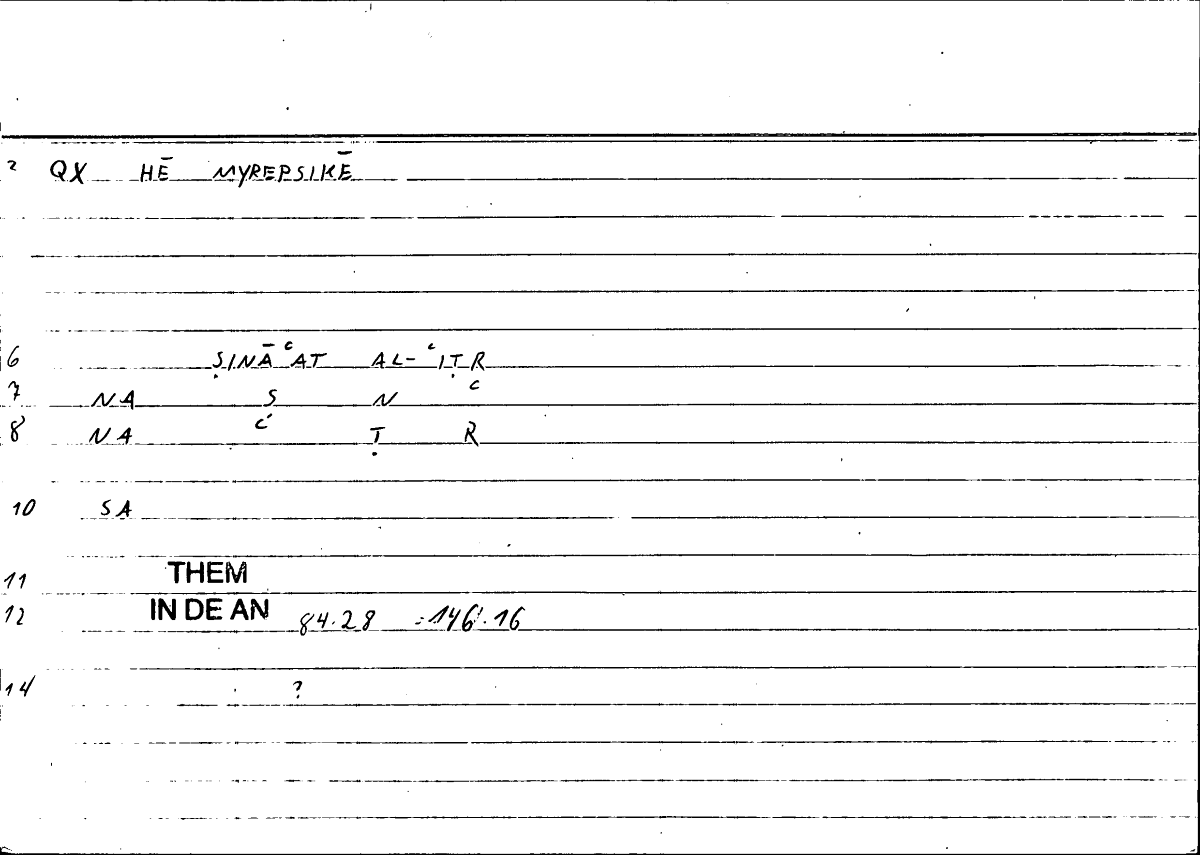 2 QX HĒ MYREPSIKĒ
6 ṢINĀʿAT AL-ʿIṬR
7 NA S N c
8 NA ć Ṭ R
10 SA
11 THEM
12 IN DE AN 84.28 =146.16
14 ?